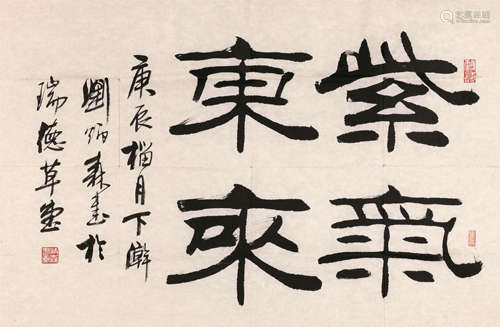 紫氣
東來
庚辰榴月下澣
劉炳森書於
瑞德草堂